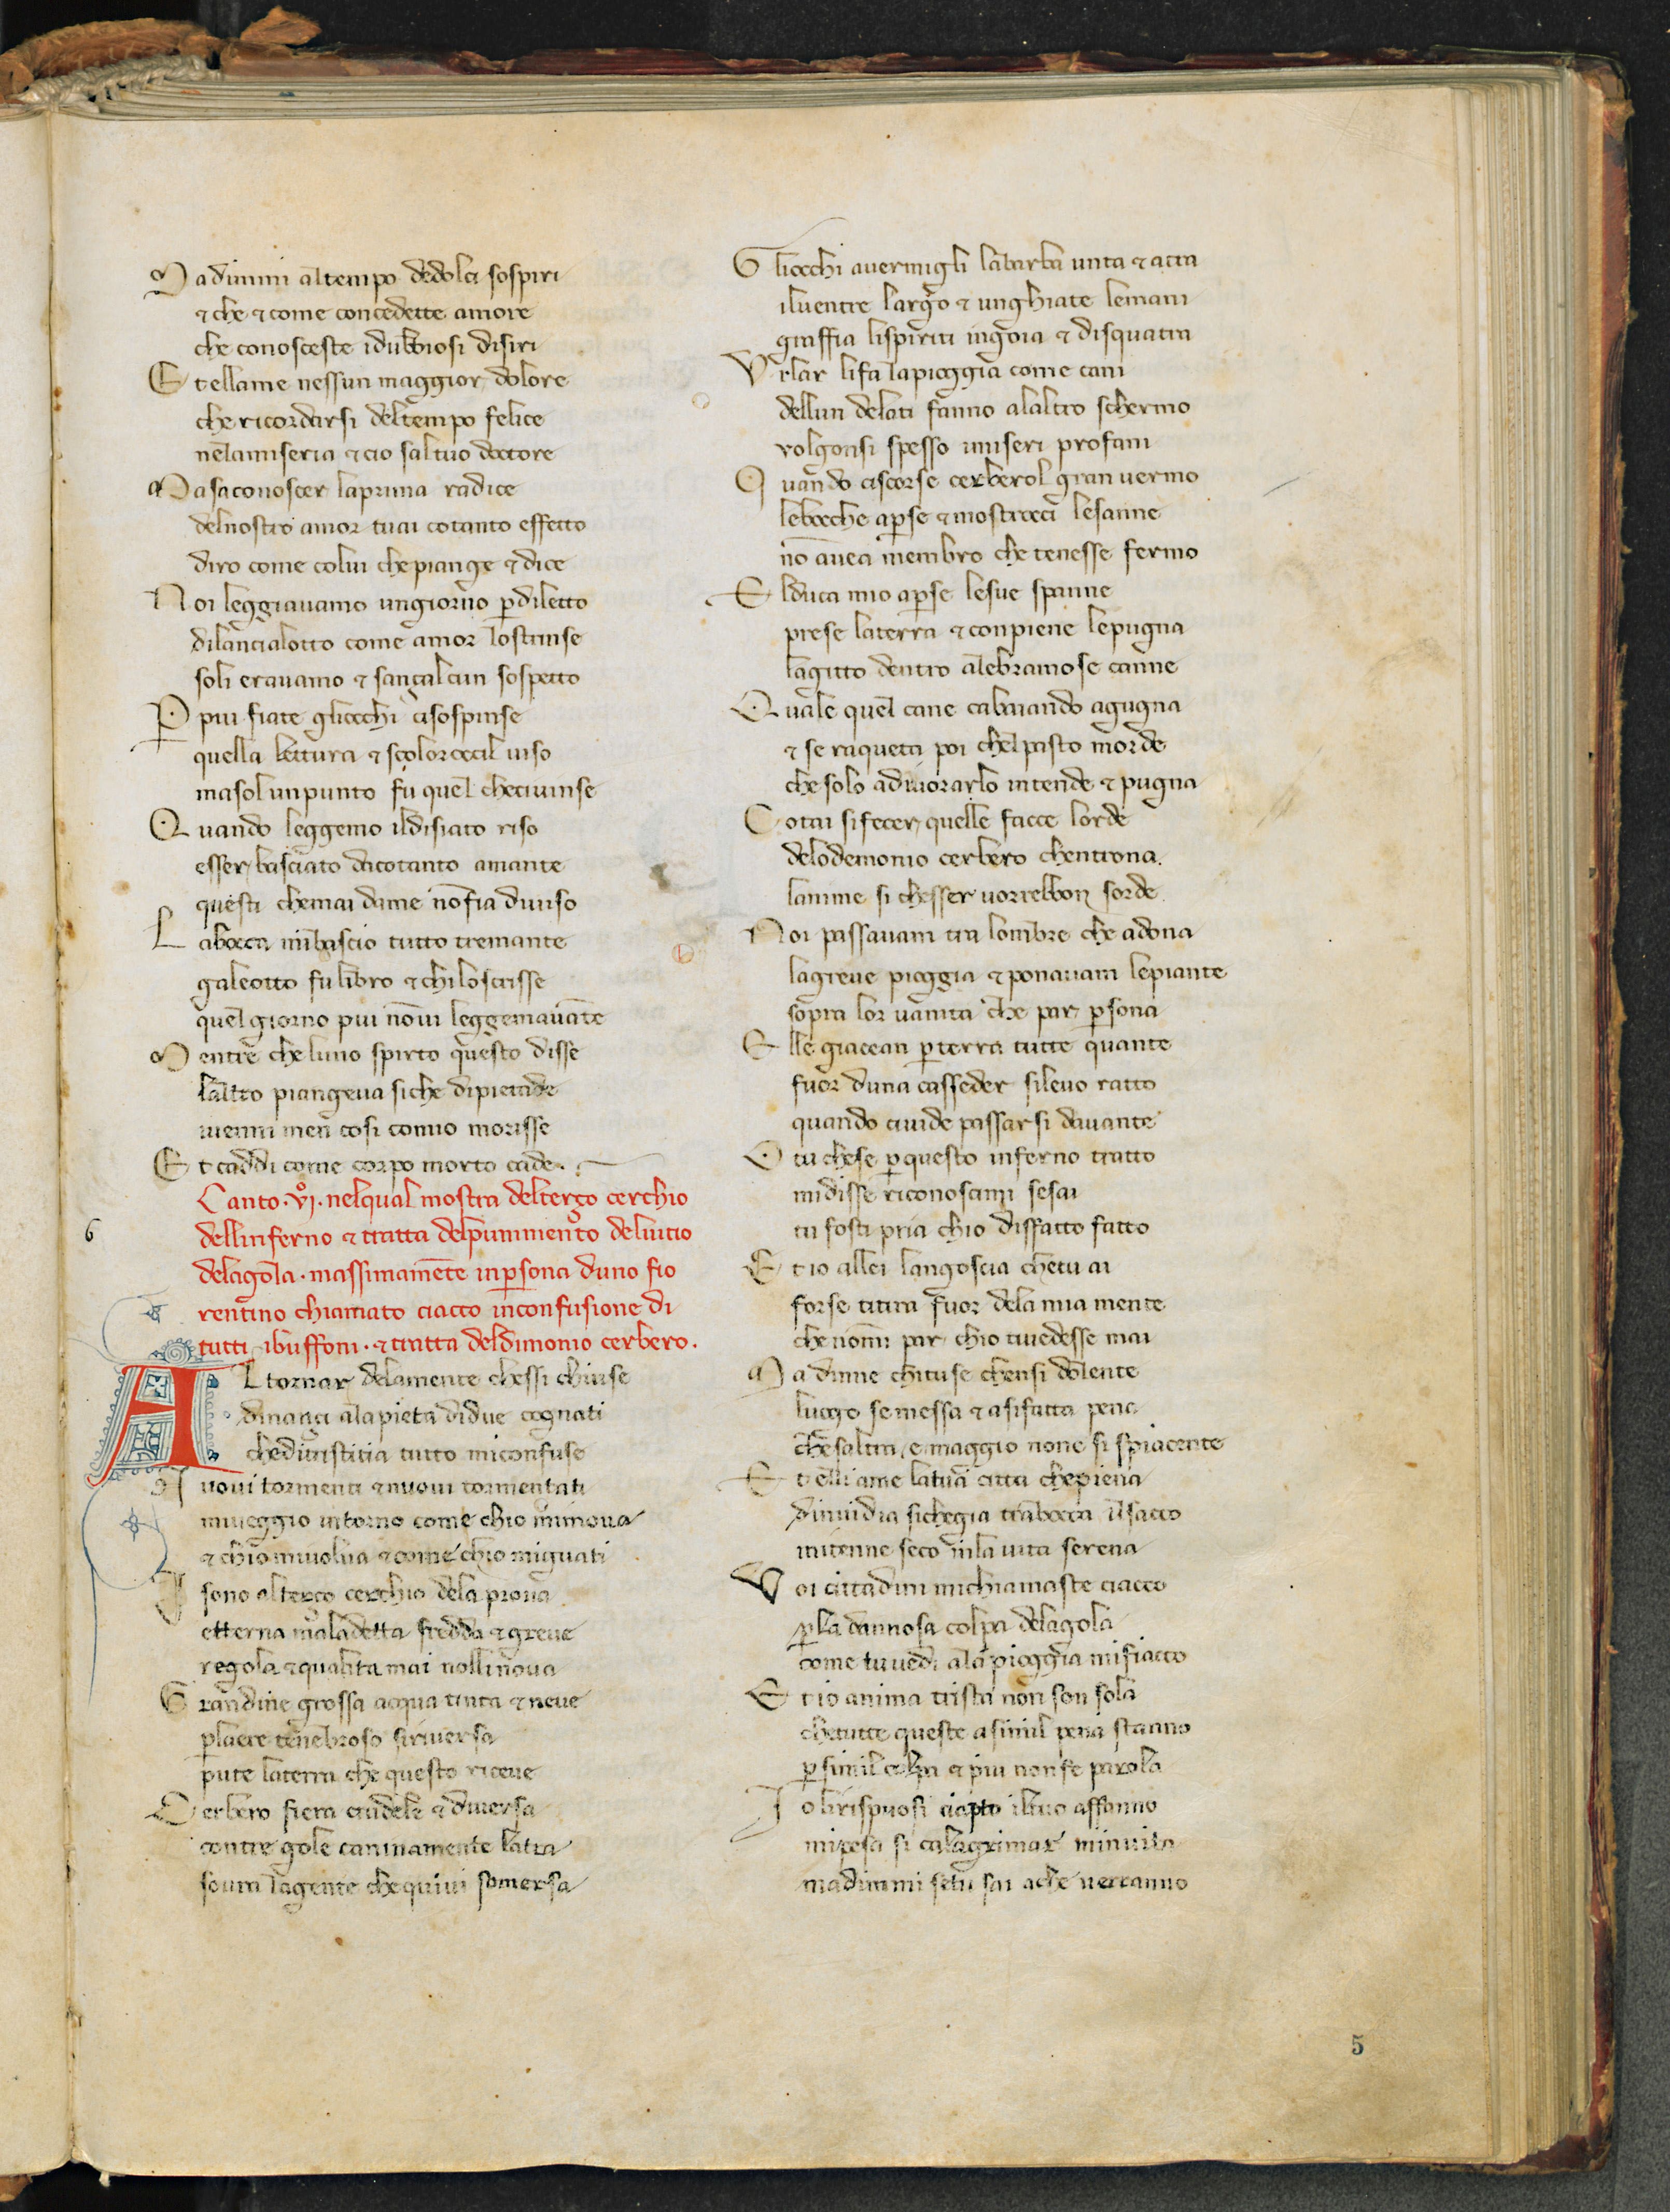 Ma dimmi altempo dedolci sospiri
& che & come concedette amore
che conosceste idubbiosi disiri
Et ellame nessun maggior dolore
che ricordarsi deltempo felice
nelamiseria & cio sal tuo doctore
Ma sa conoscer laprima radice
delnostro amor tuai cotanto effetto
diro come colui che piange & dice
Noi leggiauamo ungiorno pdiletto
dilancialotto come amor lostrinse
soli erauamo & sançalcun sospetto
P piu fiate gliocchi cisospinse
quella lettura & scolorocil uiso
masol unpunto fu quel checiuinse
Quando leggemo ildisiato riso
esser basciato dicotanto amante
questi chemai dame nō fia diuiso
La bocca mi bascio tutto tremante
galeotto fu libro & chiloscrisse
quel giorno piu nō ui leggemauāte
Mentre che luno spirto questo disse
laltro piangeua siche dipietade
iuenni men cosi comio morisse
Et caddi come corpo morto cade.
Canto .vj. nelqual mostra delterço cerchio
6
dellinferno & tratta delpunimento deluitio
delagola . massimamente inpsona duno fio
rentino chiamato ciacco inconfusione di
tutti ibuffoni . & tratta deldimonio cerbero.
AL tornar delamente chessi chiuse
dinançi alapieta didue cognati
chedi tristitia tutto miconfuse
Nuoui tormenti & nuoui tormentati
miueggio intorno come chio mimoua
& chio miuolua & come chio miguati
I sono alterço cerchio dela pioua
etterna maladetta fredda & greue
regola & qualita mai nolline noua
Grandine grossa acqua tinta & neue
plaere tenebroso siriuersa
pute laterra che questo riceue
Cerbero fiera crudele & diuersa
contre gole caninamente latra
soura lagente che quiui somersa
Gliocchi auermigli labarba unta & atra
iluentre largo & unghiate lemani
graffia lispiriti ingoia & disquatra
Vrlar lifa lapioggia come cani
dellun delati fanno alaltro schermo
volgonsi spesso imiseri profani
Quando ciscorse cerberol gran uermo
lebocche apse & mostrocci lesanne
nō auea membro che tenesse fermo
El duca mio apse lesue spanne
prese laterra & conpiene lepugna
lagitto dentro alebramose canne
Quale quel cane cabaiando agugna
& se raqueta poi chelpasto morde
che solo adiuorarlo intende & pugna
Cotai si fecer quelle facce lorde
delodemonio cerbero chentrona.
lanime si chesser uorrebbon sorde.
Noi passauam tra lombre che adona
lagreue pioggia & ponauam lepiante
sopra lor uanita che par psona
Elle giacean pterra tutte quante
fuor duna casseder sileuo ratto
quando ciuide passarsi dauante
O tu chese pquesto inferno tratto
midisse riconoscimi sesai
tu fosti pria chio disfatto fatto
Et io allei langoscia chetu ai
forse titira fuor dela mia mente
che nonmi par chio tiuedesse mai
Ma dimme chituse chensi dolente
luogo semessa & asifatta pena
chesaltra e maggio none si spiacente
Et elli ame latua citta chepiena
dinuidia sichegia trabocca il sacco
mitenne seco inla uita serena
Voi cittadini michiamaste ciacco
pla dannosa colpa delagola
come tuuedi ala pioggia mifiacco
Et io anima trista non son sola
chetutte queste a simil pena stanno
psimil colpa & piu nonfe parola
Io lirispuosi ciacco iltuo affanno
mipesa si calagrimar minuita
madimmi setu sai ache uerranno
5